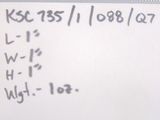 KSC 735/1/088/Q7
L- 1"
W- 1"
H- 1"
Wgt.- 1oz.